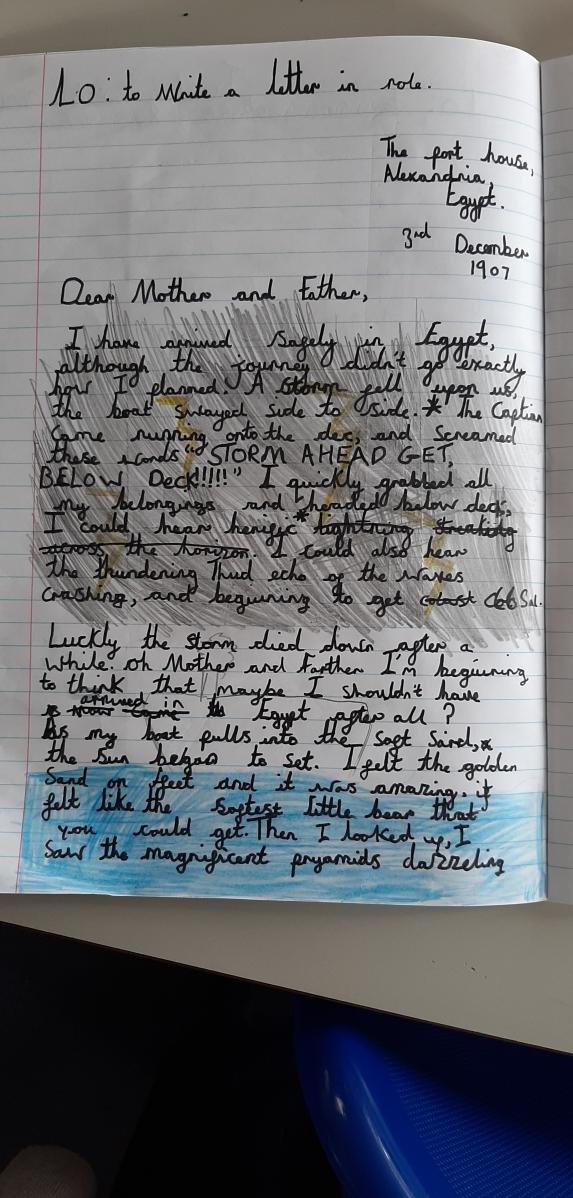 LO: to write a letter in role.
The port house,
Alexandria,
Egypt.
3rd December
1907
Dear Mother and Father,
I have arrived safely in Egypt,
although the journey didn't go exactly
how I planned. A storm fell upon us,
the boat swayed side to side. * The Captian
Came running onto the dec, and screamed
these words "STORM AHEAD GET,
BELOW Deck!!!!!" I quickly grabbed all
my belongings and headed below deck,
I could hear herrific * lightning streaking
across the horizon. I could also hear
the thundering Thud echo of the waves
crashing, and beguining to get
Luckly the storm died down after a
while. oh Mother and Farther I'm beguining
to think that maybe I shouldn't have
arrived in
now came to Egypt after all?
As my boat pulls into the soft Sand, *
the sun began to set. I felt the golden
Sand on feet and it was amazing, it
felt like the softest little bear that
you could get. Then I looked up, I
Saw the magnificant pryamids dazzeling